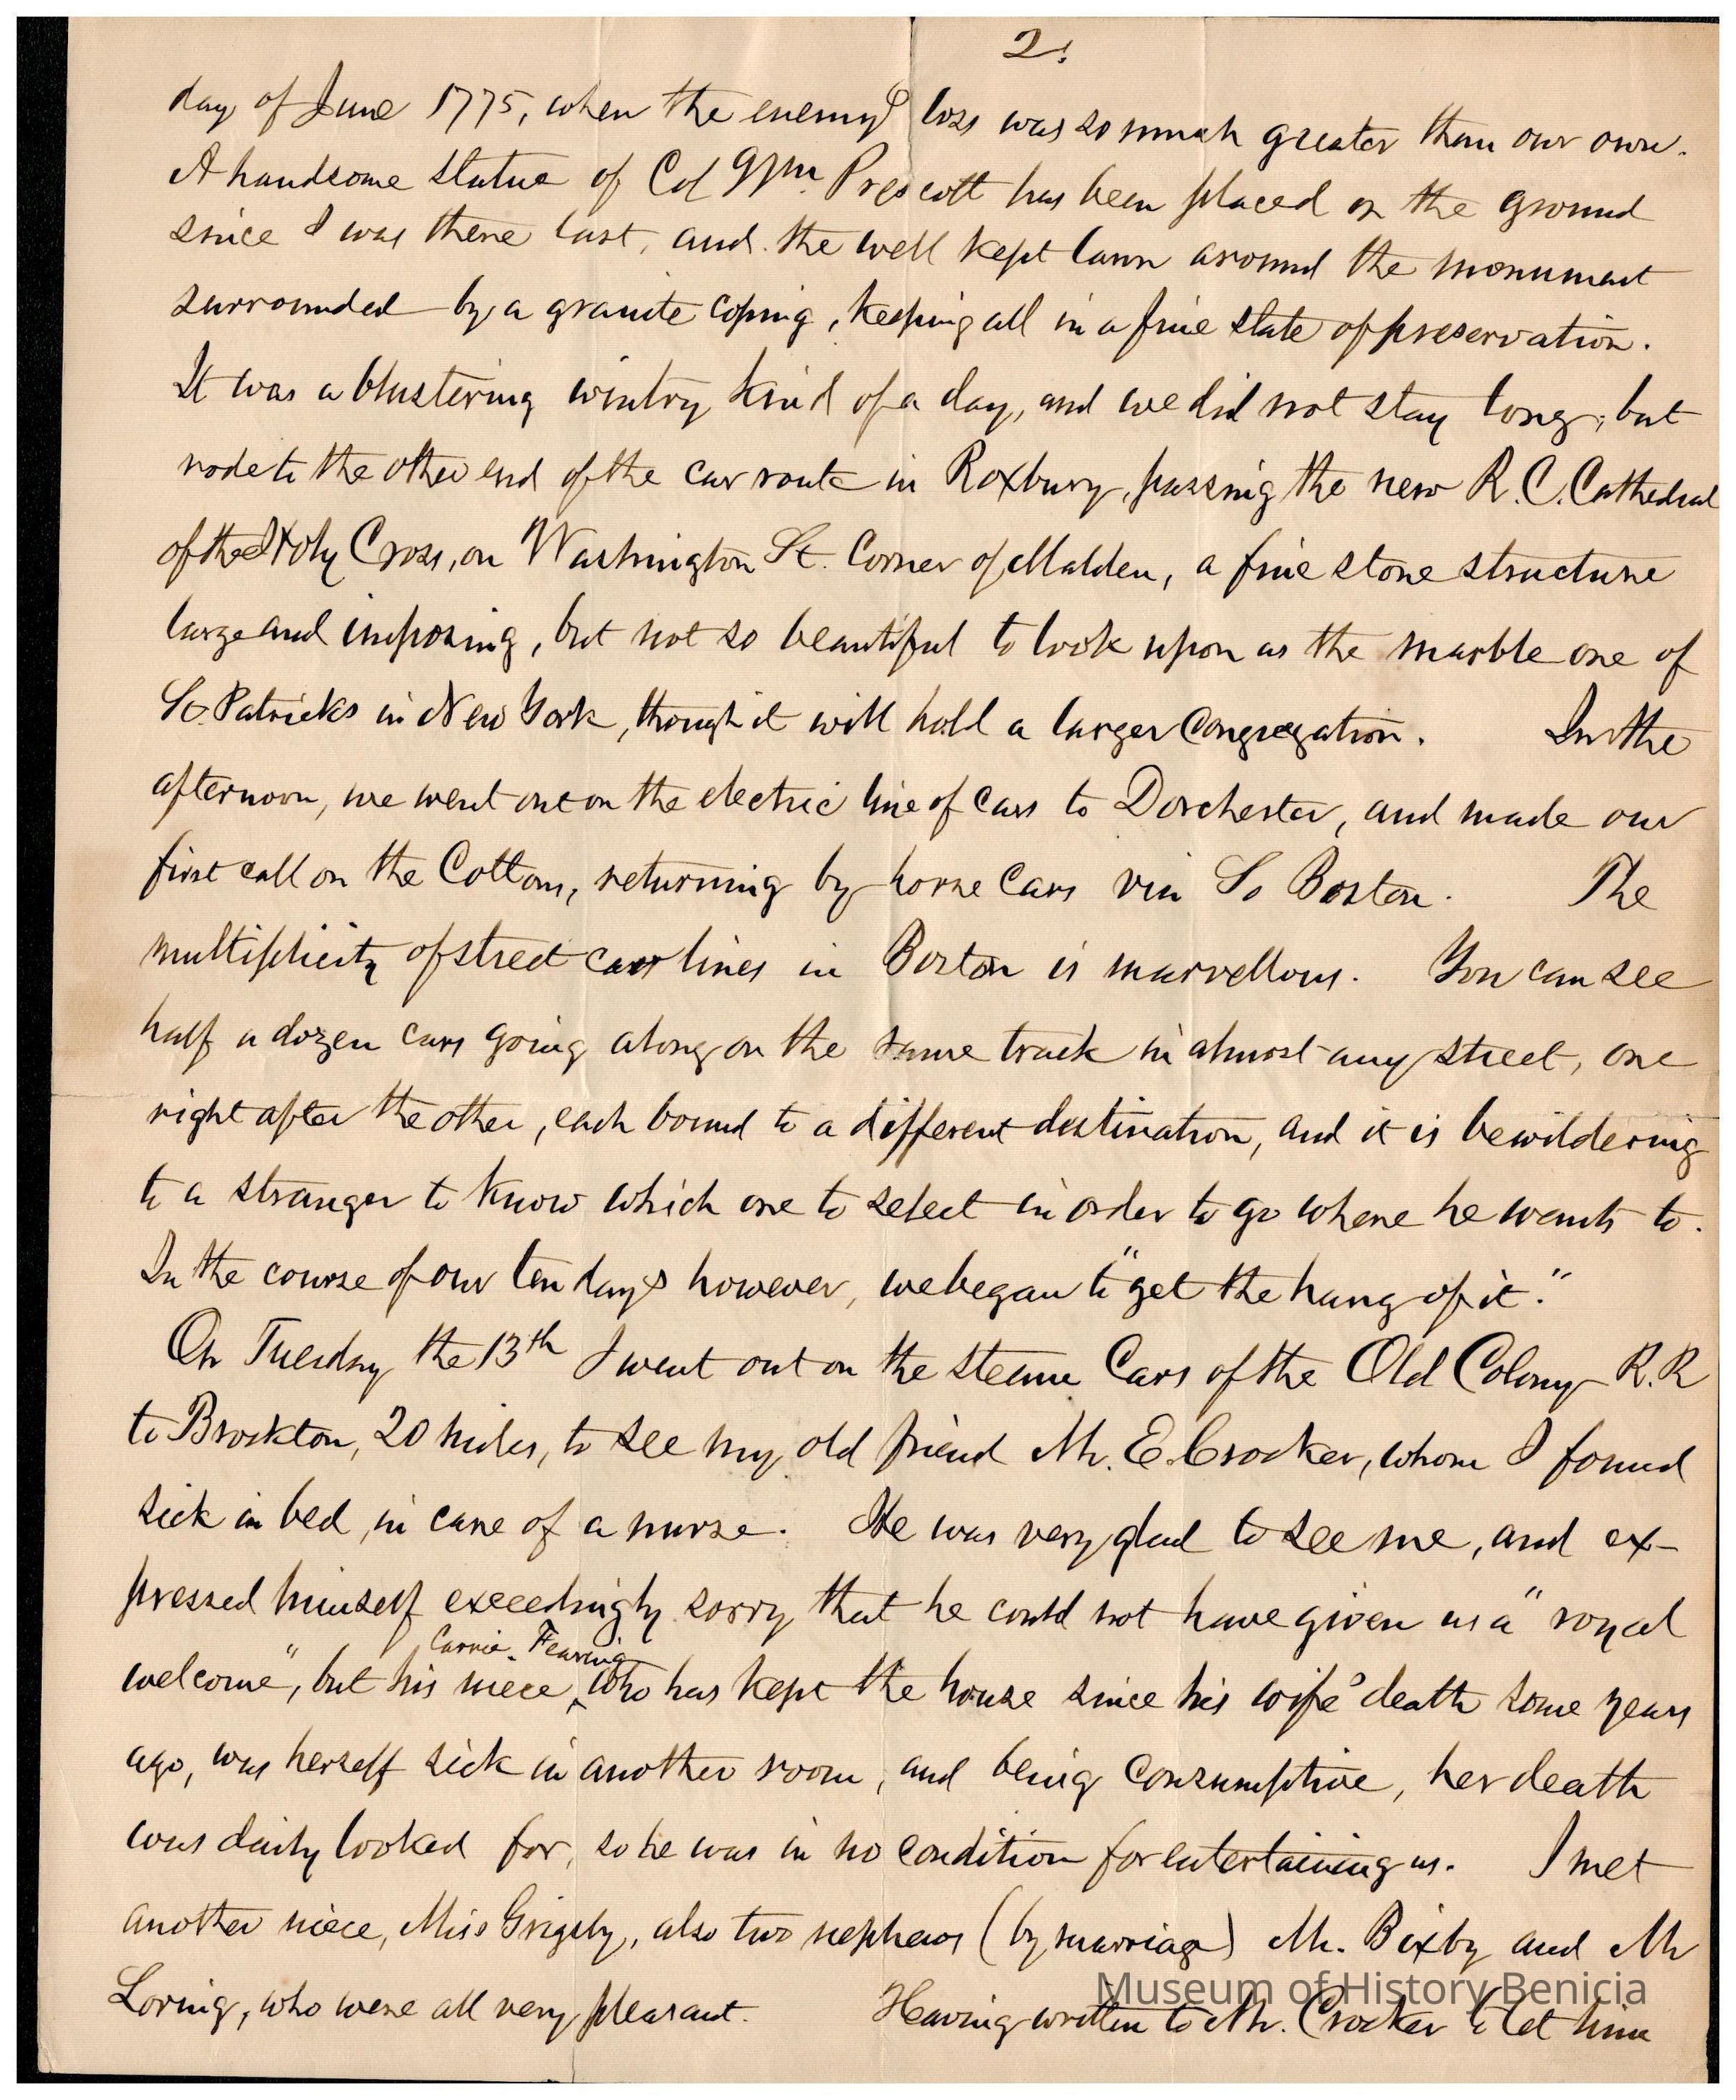 2.
day of June 1775, when the enemy's loss was so much greater than our own.
A handsome statue of Col Wm. Prescott has been placed on the ground
since I was there last, and the well kept lawn around the monument
surrounded by a granite coping, keeping all in a fine state of preservation.
It was a blustering wintry kind of a day, and we did not stay long, but
rode to the other end of the car route in Roxbury, passing the new R.C. Cathedral
of the Holy Cross, on Washington St. Corner of Malden, a fine stone structure
large and imposing, but not so beautiful to look upon as the marble one of
St. Patricks in New York, though it will hold a larger Congregation. In the
afternoon, we went out on the electric line of cars to Dorchester, and made our
first call on the Cottons, returning by horse cars via So Boston. The
multiplicity of street car lines in Boston is marvellous. You can see
half a dozen cars going along on the same track in almost any street, one
right after the other, each bound to a different destination, and it is bewildering
to a stranger to know which one to select in order to go where he wants to.
In the course of our ten days however, we began to "get the hang of it."
On Tuesday the 13th I went out on the steam Cars of the Old Colony R.R
to Brockton, 20 miles, to see my old friend Mr. E. Crocker, whom I found
sick in bed, in care of a nurse. He was very glad to see me, and ex-
pressed himself exceedingly sorry that he could not have given us a "royal
Carrie Fearing
welcome", but his niece ‸ who has kept the house since his wife's death some years
ago, was herself sick in another room, and being consumptive, her death
was daily looked for, so he was in no condition for entertaining us. I met
another niece, Miss Grigsby, also two nephews (by marriage) Mr. Bixby and Mr
Loring, who were all very pleasant. Having written to Mr. Crocker to let him
Museum of History Benicia